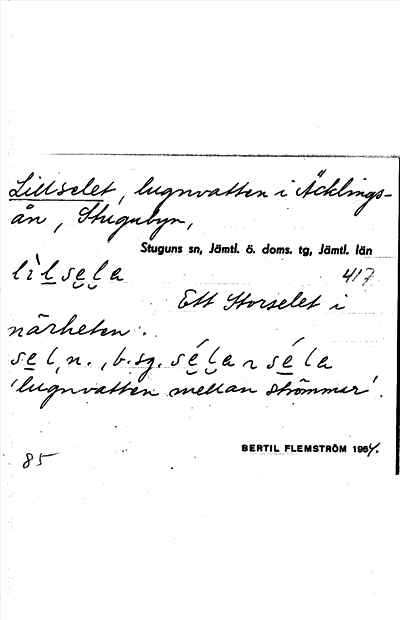 Lillselet, lugnvatten i Äcklings-
ån, Stugubyn,
Stuguns sn, Jämtl. ö. doms. tg, Jämtl. län
lìlsela 417
Ett Storselet i
närheten.
sel, n., b.sg. séla ~ séla
'lugnvatten mellan strömmar'.
85 BERTIL FLEMSTRÖM 1954.